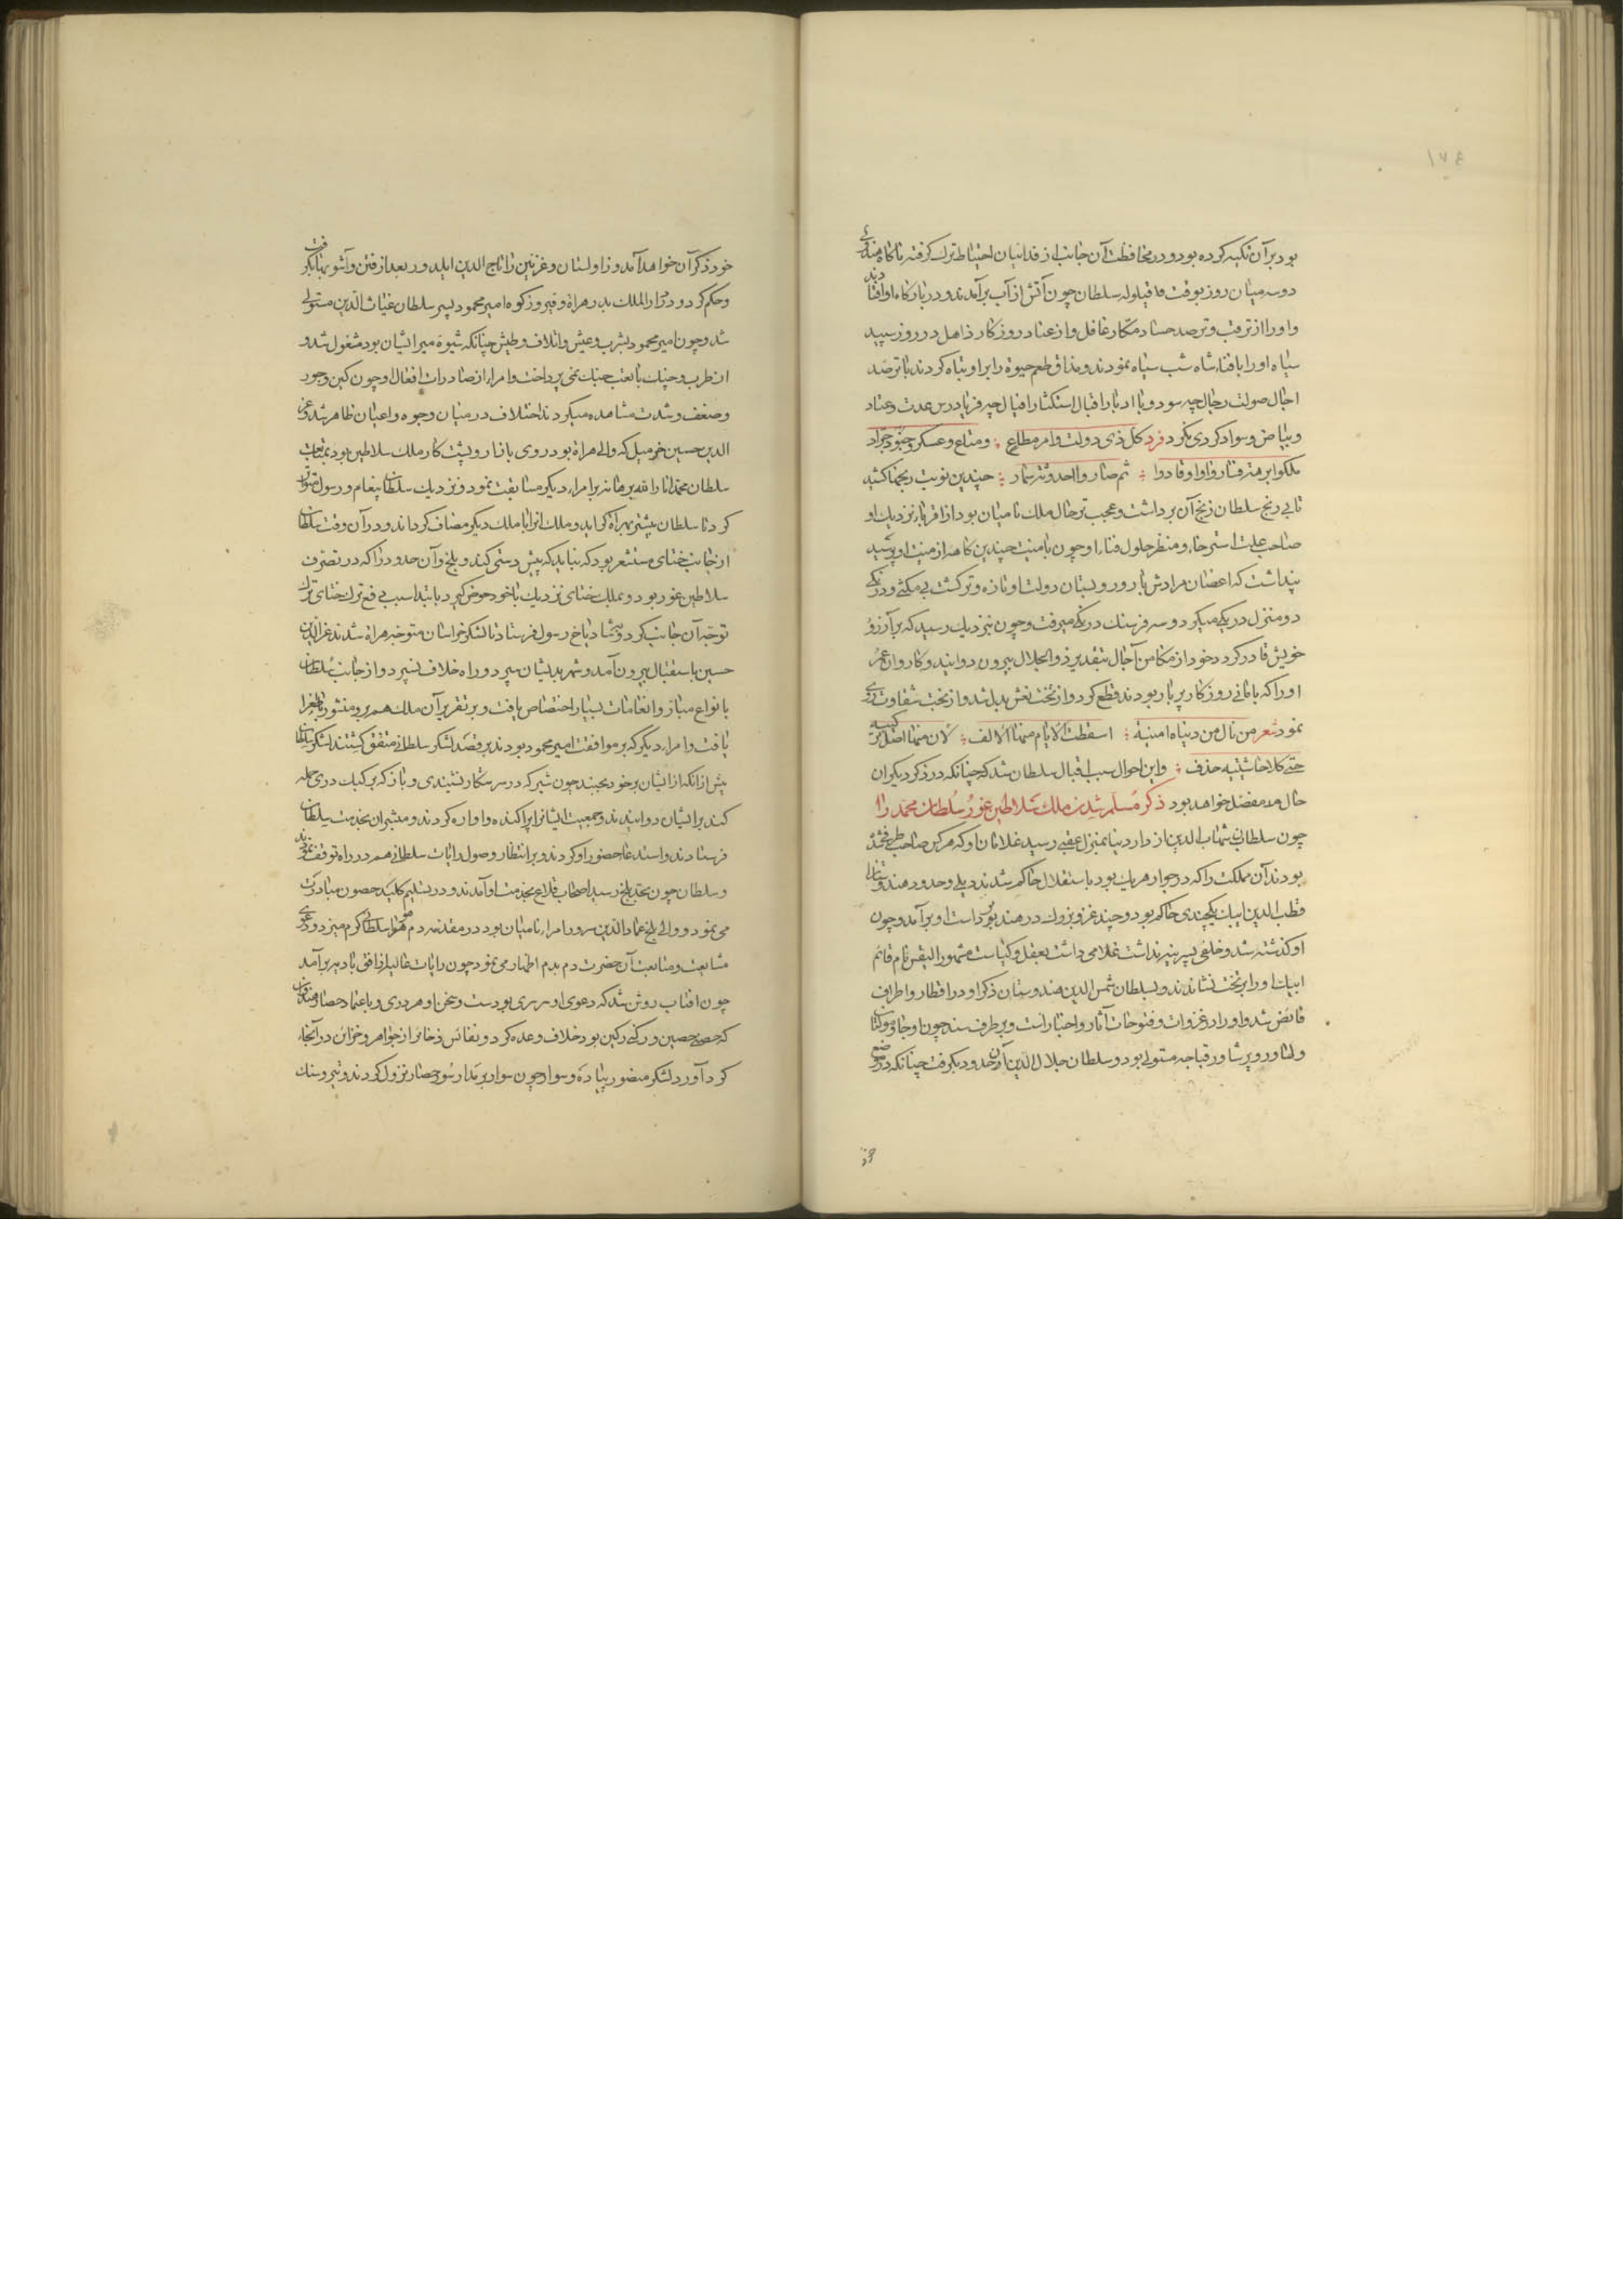 بود بر آن تکیه کرده بود و در محافظت آن جانب از فدائیان احتیاط ترک گرفته ناگاه هندوئی
دو سه میان روز بوقت قیلوله سلطان چون آتش از آب برآمدند و در بارگاه او افتادند
و او را از ترقب و ترصد حساد مکار غافل و از عناد روزگار ذاهل در روز سپید
سیاه او را با فناء شاه شب سیاه نمودند و مذاق طعم حیوة را بر او تباه کردند با ترصد
اجال صولت رجال چه سود و با ادبار اقبال استکثار افیال چه فریاد رس عدت و عتاد
و بیاض و سواد کردی نکرد فرد کل ذی دولت و امر مطاع ؛ و متاع و عسکر و جنود جراد
ملکوا برهة فسادوا و قادوا ؛ ثم صاروا احدوثة سمار ؛ چندین نوبت رنجها کشید
تا بی رنج سلطان زنج آن برداشت و عجب تر حال ملک بامیان بود از اقربا نزدیک او
صاحب علت استرخاء و منظر حلول فناء او چون بامنیت چندین کاهه از منیت او پرسید
پنداشت که اغصان مرادش بارور و بستان دولت او تازه و تر گشت بی مکثی و درنگی
دو منزل در یکی میکرد و سه فرسنگ در یکی میرفت و چون نزدیک رسید که بر آرزو
خویش قادر گردد خود از مکامن آجال بتقدیر ذو الجلال بیرون دوانید و کاروان عمر
او را که با مانی روزگار پر بار بودند قطع کرد و از تخت نعش بدل شد و از بخت شقاوت روی
نمود شعر من نال من دنیاه امنیة ؛ اسقطت الایام منها الالف ؛ لان منها اصل ترکیبه
حتی کلا حاشیتیه حذف ؛ و این احوال سبب اقبال سلطان شد که چنانکه در ذکر دیگران
حال مفصل خواهد بود ذکر مسلم شدن ملک سلاطین غور سلطان محمد را
چون سلطان شهاب الدین از دار دنیا بمنزل عقبی رسید غلامان او که هر کس صاحب طرفی شده
بودند آن مملکت را که در جوار هر یک بود باستقلال حاکم شدند دیلی و حدود هندوستان را
قطب الدین ایبک یکچندی حاکم بود و چند غزو بزرگ در هند بر دست او برآمد و چون
او گذشته شد و خلفی پسرینه نداشت غلامی داشت بعقل و کیاست مشهور التیمش نام قائم
ایبک او را بر تخت نشاندند و بسلطان شمس الدین هندوستان ذکر او در اقطار و اطراف
فائض شد و او را در غزوات و فتوحات آثار و اخبار است و بر طرف سند چون اوجا و مولتان
و لهاور و پرشاور قباجه مستولی بود و سلطان جلال الدین آن حدود بگرفت چنانکه در موضع
خود ذکر آن خواهد آمد و زاولستان و غزنین را تاج الدین ایلدور بعد از فتن و آشوبها بگرفت
و حکم کرد و در دار الملک بدر هراة و فیروزکوه امیر محمود پسر سلطان غیاث الدین مستولی
شد و چون امیر محمود بشرب و عیش و اتلاف و طیش چنانکه شیوه میراثیان بود مشغول شد و
از طرب و چنگ با تعب جنگ نمی پرداخت و امراء از صادرات افعال او چون کین وجود
و ضعف و شدت مشاهده میکردند اختلاف در میان وجوه و اعیان ظاهر شد و عز
الدین حسین خرمیل که والی هراة بود روی بازار و پشت کار ملک سلاطین بود بمتابعت
سلطان محمد انار الله برهانه بر امراء دیگر مسابقت نمود و نزدیک سلطان پیغام و رسول متواتر
کرد تا سلطان پیشتر بهراة گراید و ملک انرا با ملک دیگر مضاف گرداند و در آن وقت سلطان
از جانب ختای مستشعر بود که نباید که پیش دستی کند و بلخ و آن حدود را که در تصرف
سلاطین غور بود و بملک ختای نزدیک با خود حوض گیرد باید اسب دفع ترک ختای ترک
توجه آن جانب کرد و بشادیاخ رسول فرستاد تا لشکر خراسان متوجه هراة شدند عز الدین
حسین باستقبال بیرون آمد و شهر بدیشان سپرد و راه خلاف نسپرد و از جانب سلطان
بانواع مبار و انعامات بسیار اختصاص یافت و بر تقریر آن ملک هم برو منشور با طغرا
یافت و امراء دیگر که بر موافقت امیر محمود بودند بر قصد لشکر سلطانی متفق گشتند لشکر سلطان
پیش از آنکه ازایشان بر خود بجنبند چون شیر که در سر شکار نشیندی و باز که بر کبک دری حمله
کند بر ایشان دوانیدند و جمعیت ایشانرا پراکنده و اواره کردند و مبشران بخدمت سلطان
فرستادند و استدعا حضور او کردند و بر انتظار وصول رایات سلطانی هم در راه توقف نمودند
و سلطان چون بحد بلخ رسید اصحاب قلاع بخدمت او آمدند و در تسلیم کلید حصون مبادرت
می نمود و والی بلخ عماد الدین سرور امراء بامیان بود در مقدمه دم هوا سلطانی گرم میزد و دعوی
مشایعت و متابعت آن حضرت دم بدم اظهار می نمود چون رایات عالیه از افق بادیه برآمد
چون افتاب روشن شد که دعوی او سرسری بودست و سخن او هر دری و باعتماد حصار هندوان
که حصنی حصین و رکنی رکین بود خلاف وعده کرد و نفائس ذخائر از جواهر و خزائن در آنجا
گرد آورد لشکر منصور پیاده و سوار چون سوار بر مدار سور حصار نزول کردند و تیر و سنگ